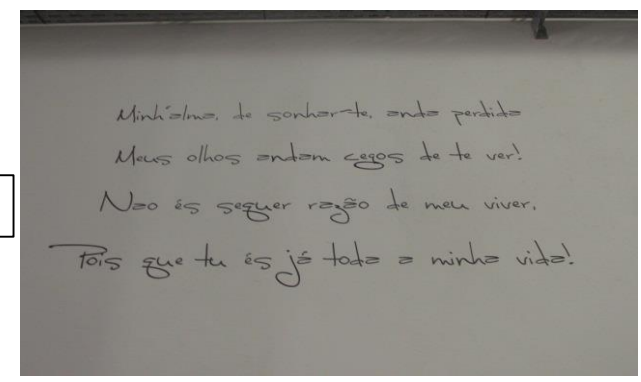 Minh'alma, de sonhar-te, anda perdida
Meus olhos andam cegos de te ver!
Nao és sequer razão de meu viver,
Pois que tu és já toda a minha vida!